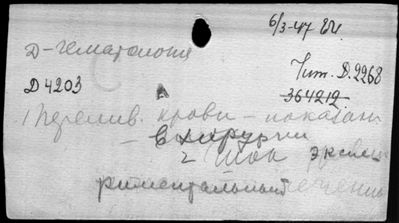 6/3-47
Д-гематология
Д4203
Чит. Д.2968
364212
1 Перелив. крови – показан
– в хирургии
2 Шок экспе
риментальный лечение